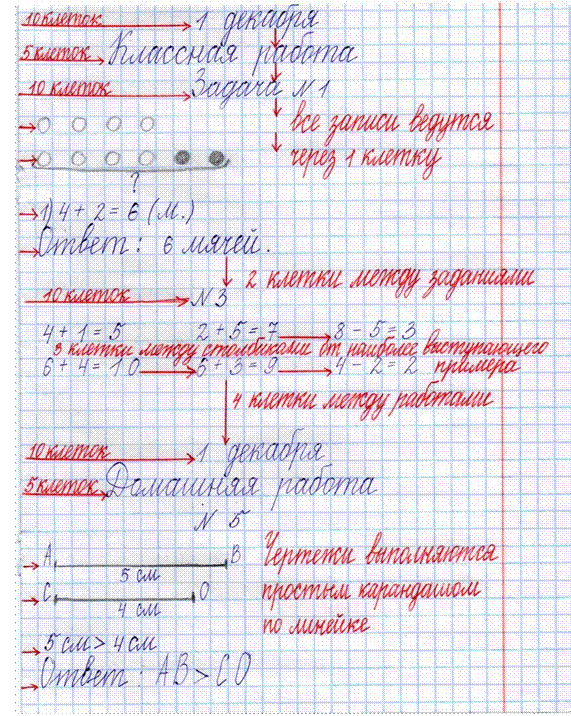 10 клеток 1 декабря
5 клеток Классная работа
10 клеток Задача N 1
все записи ведутся
через 1 клетку
?
1) 4 + 2 = 6 (м.)
Ответ: 6 мячей.
2 клетки между заданиями
10 клеток N 3
4 + 1 = 5 2 + 5 = 7 8 - 5 = 3
3 клетки между столбиками от наиболее выступающего
6 + 4 = 10 6 + 3 = 9 4 - 2 = 2 примера
4 клетки между работами
10 клеток 1 декабря
5 клеток Домашняя работа
N 5
A B Чертежи выполняются
5 см
C O простым карандашом
4 см
по линейке
5 см > 4 см
Ответ: AB > CO